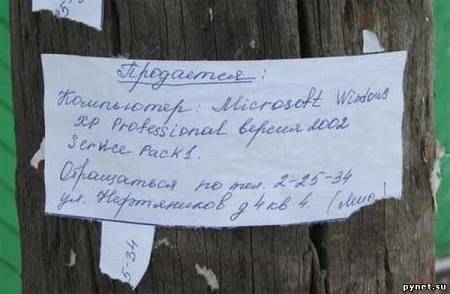 Продается:
Компьютер: Microsoft Windows
XP Professional версия 2002
Service Pack 1.
Обращаться по тел. 2-25-34
ул. Нефтяников д 4 кв 4.
5-34
5-34
pynet.su